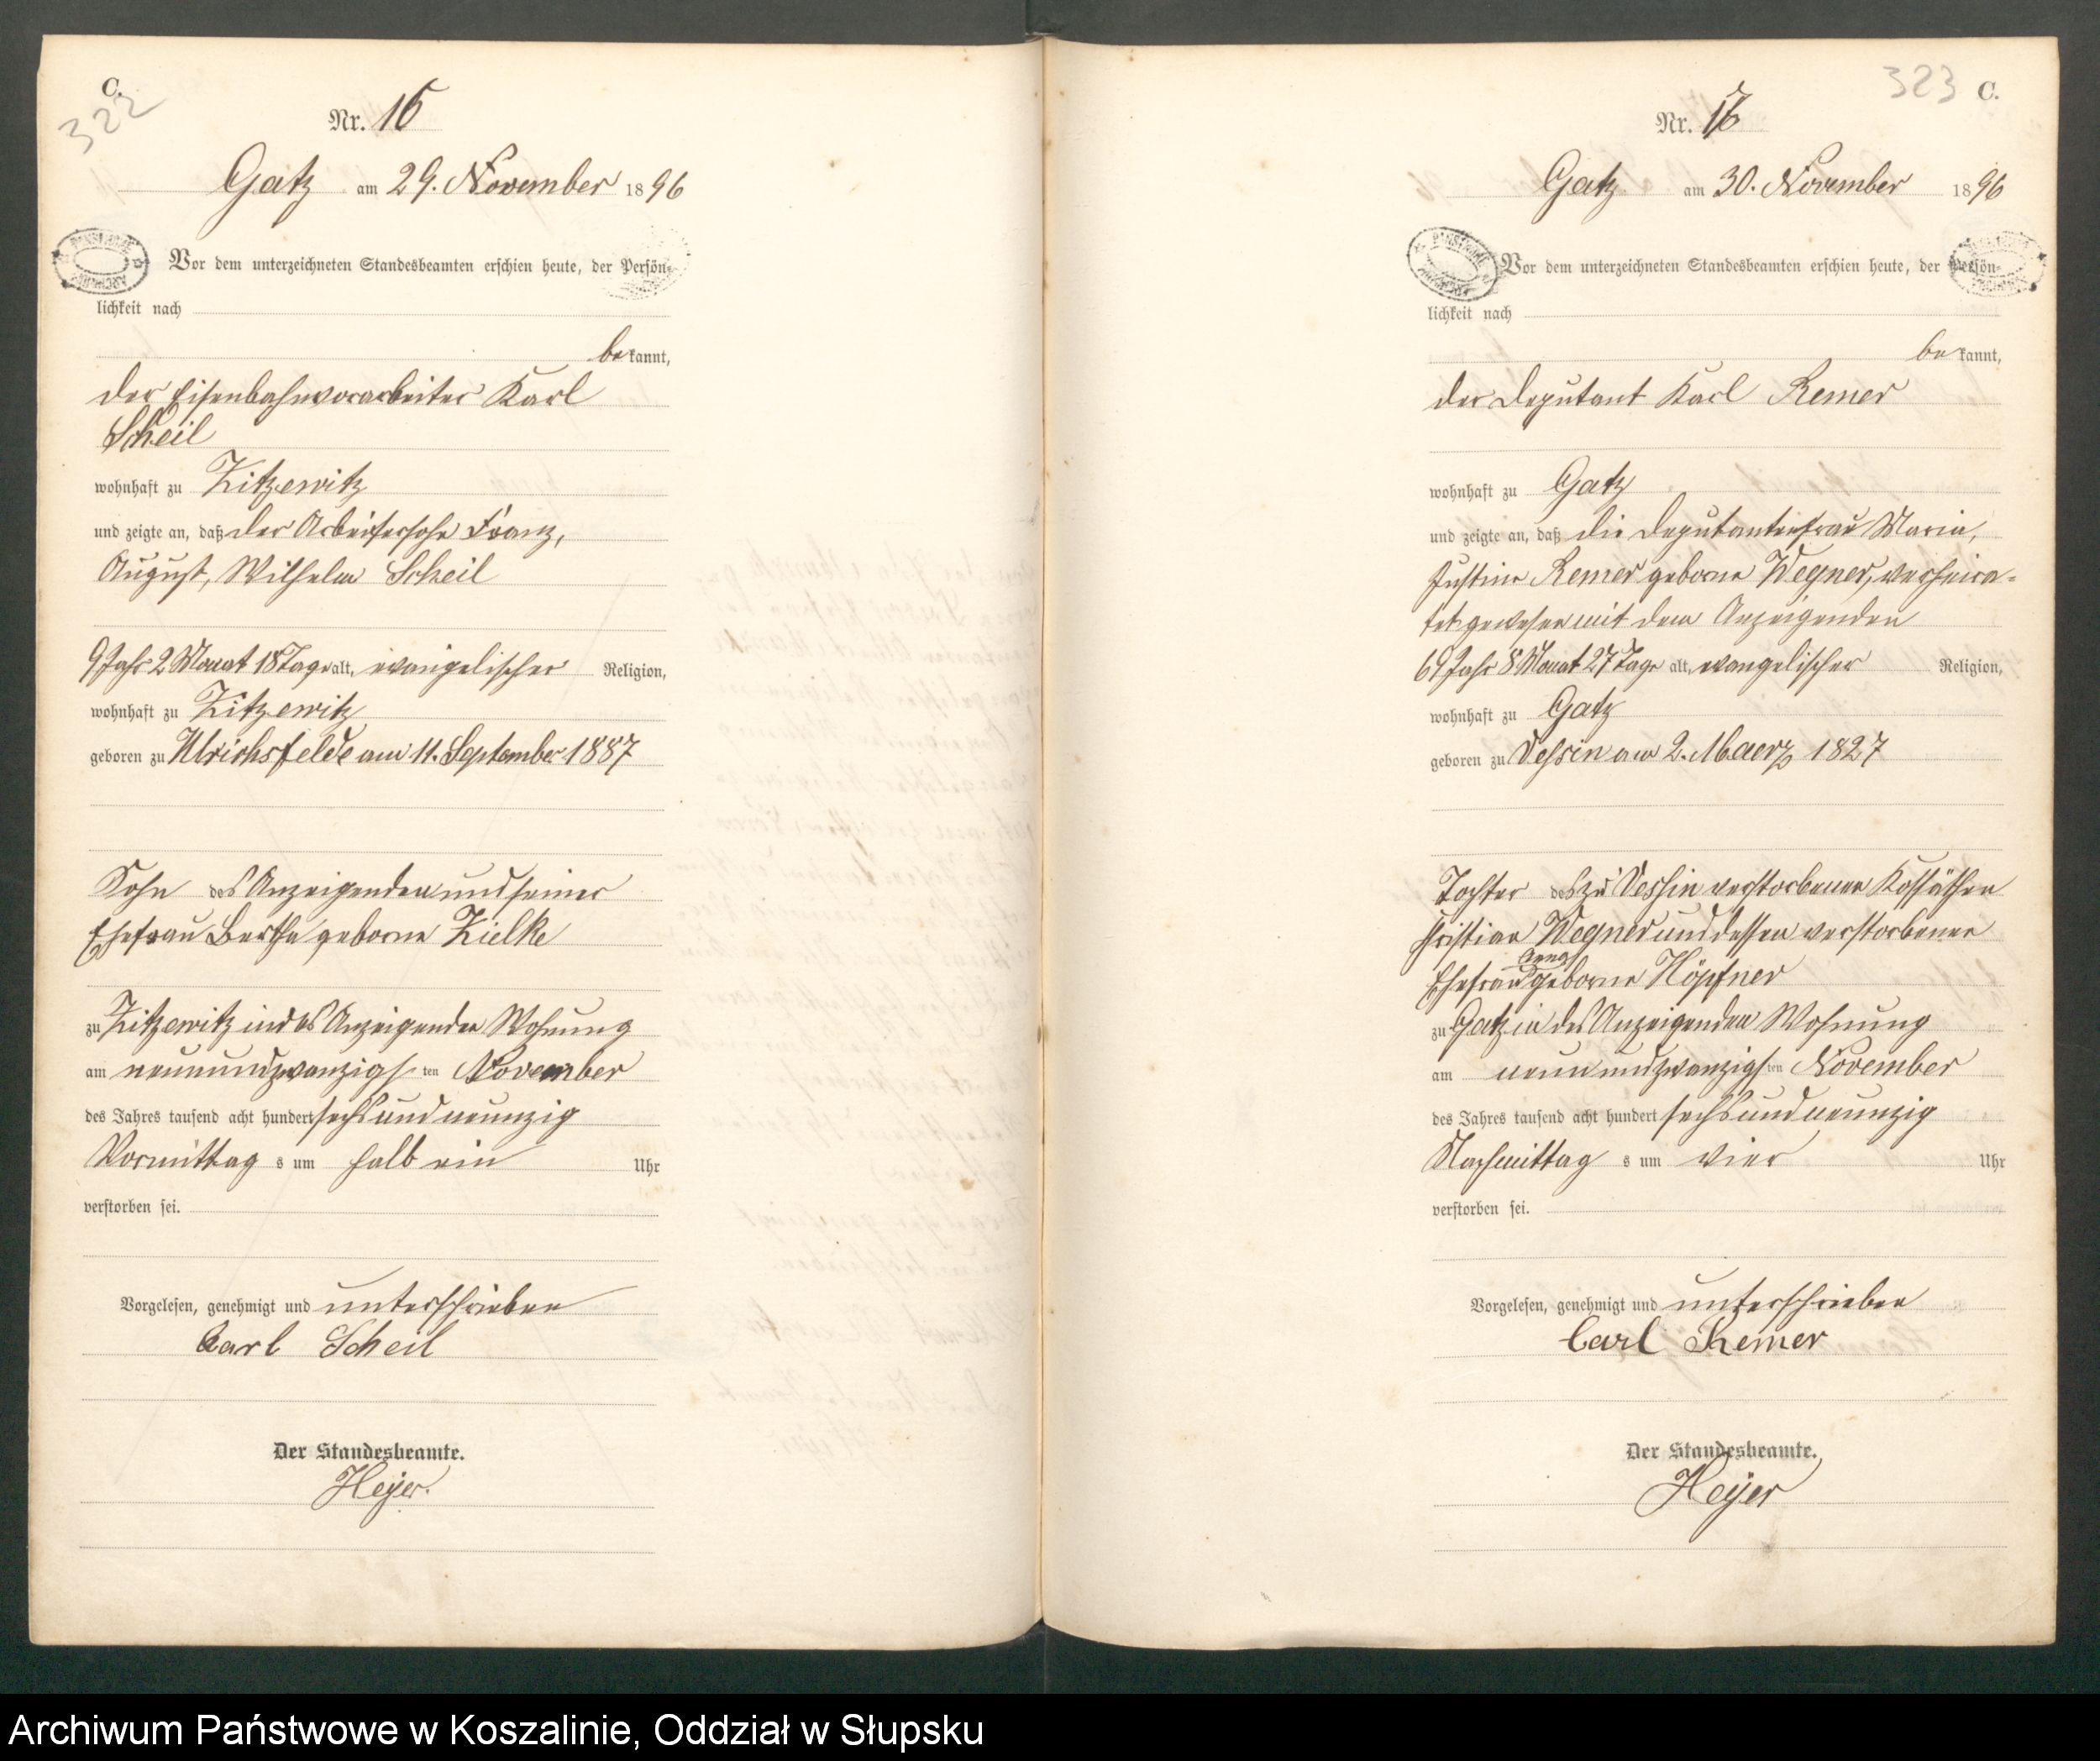 C.
322
Nr. 16
Gatz am 29. November 1896
Vor dem unterzeichneten Standesbeamten erschien heute, der Persön-
lichkeit nach
bekannt,
der Eisenbahnvorarbeiter Karl
Scheil
wohnhaft zu Zitzewitz
und zeigte an, daß der Arbeitersohn Franz,
August, Wilhelm Scheil
9 Jahr 2 Monat 18 Tage alt, evangelischer Religion,
wohnhaft zu Zitzewitz
geboren zu Ulrichsfelde am 11. September 1887
Sohn des Anzeigenden und seiner
Ehefrau Bertha geborne Zielke
zu Zitzewitz in des Anzeigenden Wohnung
am neunundzwanzigsten November
des Jahres tausend acht hundert sechsundneunzig
Vormittags um halb ein Uhr
verstorben sei.
Vorgelesen, genehmigt und unterschrieben
Carl Scheil
Der Standesbeamte.
Heyer.
323 C.
Nr. 17
Gatz am 30. November 1896
Vor dem unterzeichneten Standesbeamten erschien heute, der Persön-
lichkeit nach
bekannt,
der Deputant Karl Remer
wohnhaft zu Gatz
und zeigte an, daß die Deputantenfrau Maria,
Justine Remer geborne Wegner, verheira-
tet gewesen mit dem Anzeigenden
69 Jahr 8 Monat 27 Tage alt, evangelischer Religion,
wohnhaft zu Gatz
geboren zu Vessin am 2. Maerz 1827
Tochter des zu Vessin verstorbenen Kossäthen
Christian Wegner und dessen verstorbenen
Ehefrau geborne Höpfner
zu Gatz in des Anzeigenden Wohnung
am neunundzwanzigsten November
des Jahres tausend acht hundert sechsundneunzig
Nachmittags um vier Uhr
verstorben sei.
Vorgelesen, genehmigt und unterschrieben
Carl Remer
Der Standesbeamte.
Heyer
Archiwum Państwowe w Koszalinie, Oddział w Słupsku